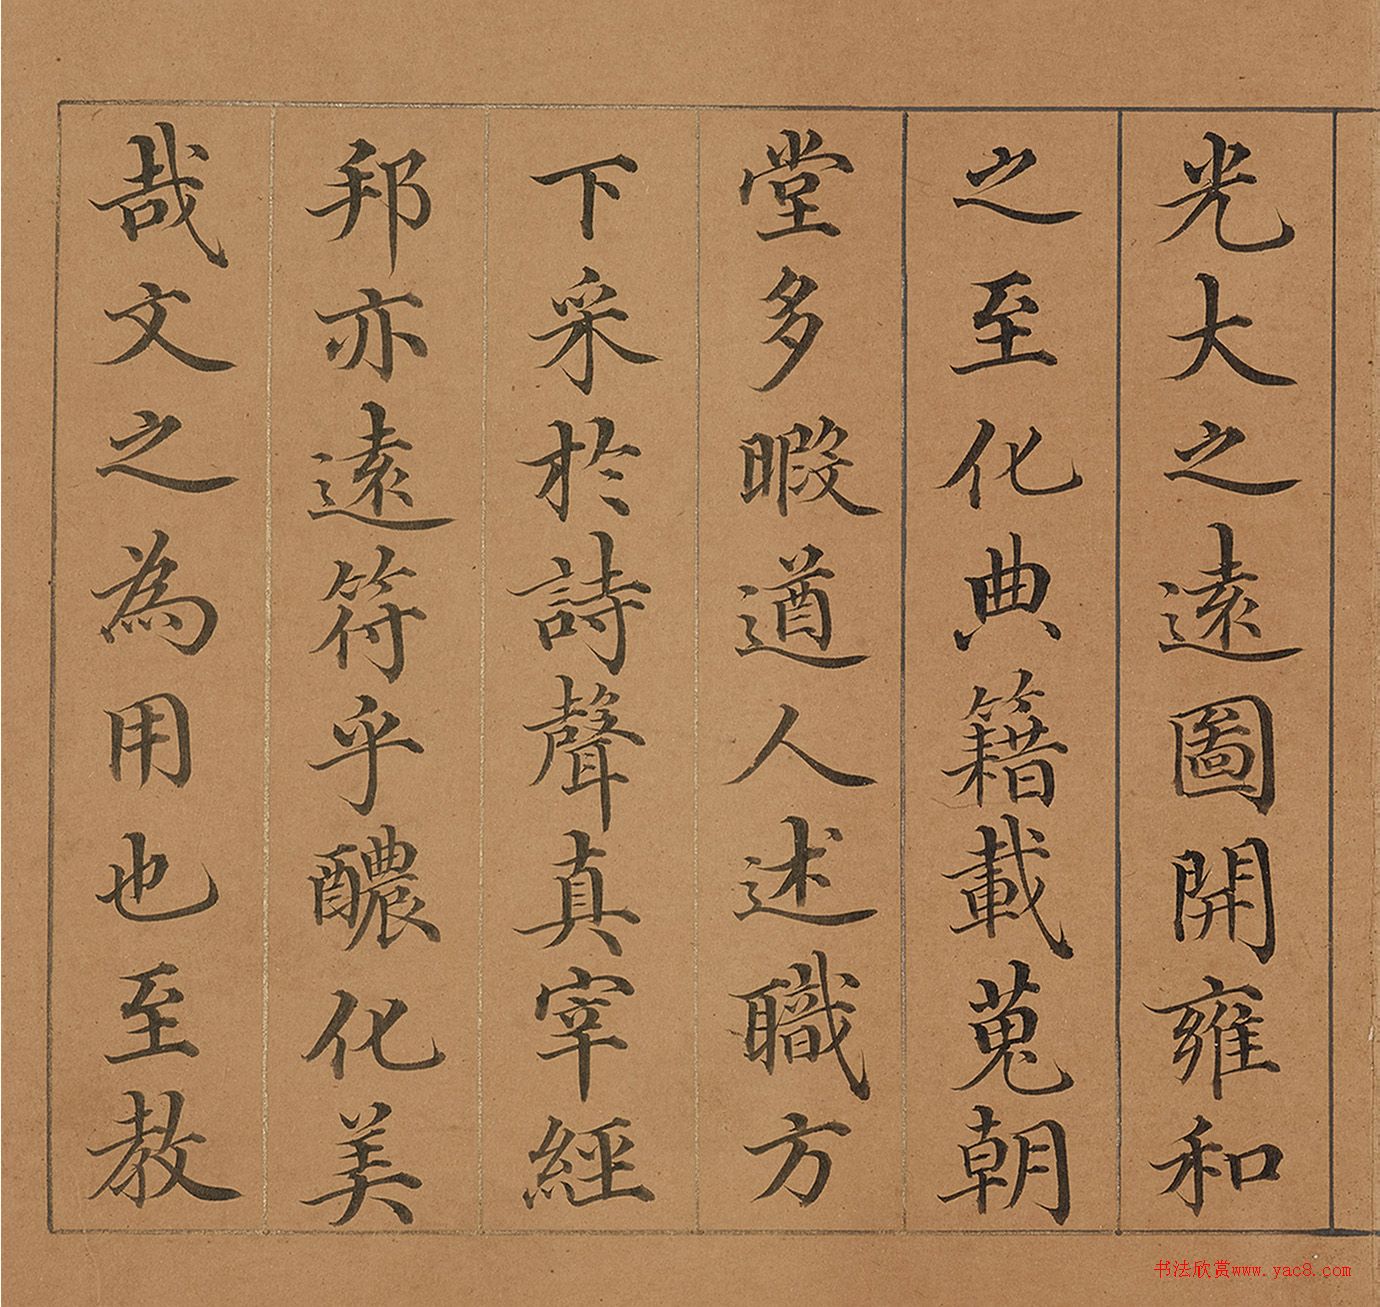 光大之遠圖開雍和
之至化典籍載蒐朝
堂多暇遒人述職方
下采於詩聲真宰經
邦亦遠符乎醲化美
哉文之為用也至教
书法欣赏www.yac8.com